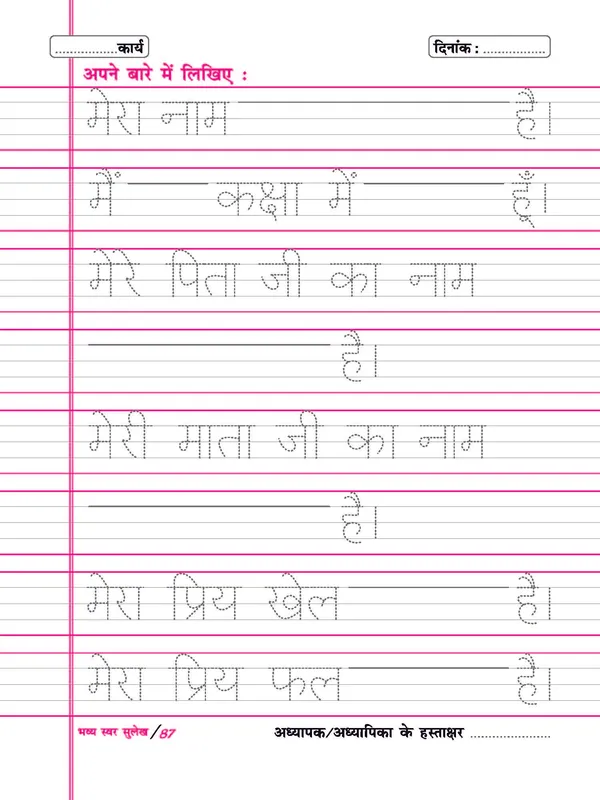 ..................कार्य
दिनांक : ..................
अपने बारे में लिखिए :
मेरा नाम ____________ है।
मैं ______ कक्षा में __________ हूँ।
मेरे पिता जी का नाम
__________________ है।
मेरी माता जी का नाम
__________________ है।
मेरा प्रिय खेल ____________ है।
मेरा प्रिय फल ____________ है।
भव्य स्वर सुलेख/87
अध्यापक/अध्यापिका के हस्ताक्षर ......................